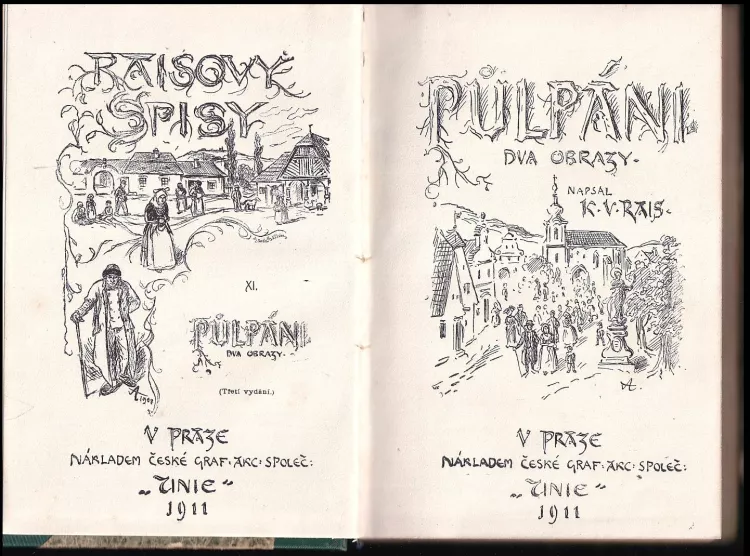 RAISOVY
SPISY
XI.
PŮLPÁNI.
DVA OBRAZY.
(Třetí vydání.)
V PRAZE
NÁKLADEM ČESKÉ GRAF. AKC: SPOLEČ:
„UNIE“
1911
PŮLPÁNI.
DVA OBRAZY.
NAPSAL
K. V. RAIS.
V PRAZE
NÁKLADEM ČESKÉ GRAF. AKC: SPOLEČ:
„UNIE“
1911